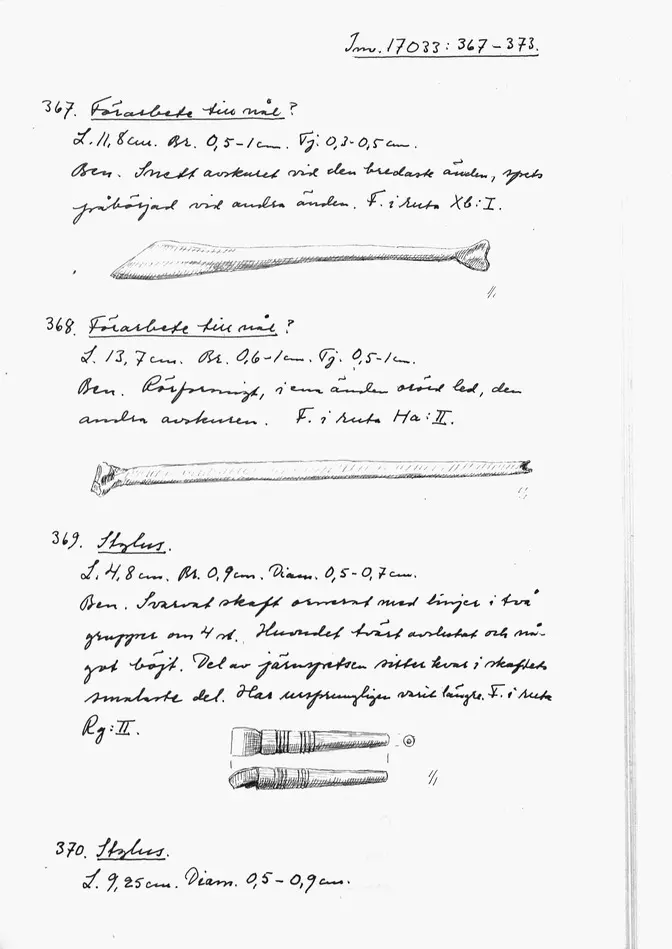 Inv. 17033:367-373.
367. Förarbete till nål?
L. 11,8 cm. Br. 0,5-1 cm. Tj. 0,3-0,5 cm.
Ben. Snett avskuret vid den bredaste änden, spets
påbörjad vid andra änden. F. i ruta Xb:I.
1/1
368. Förarbete till nål?
L. 13,7 cm. Br. 0,6-1 cm. Tj. 0,5-1 cm.
Ben. Rörformigt, i ena änden orörd led, den
andra avskuren. F. i ruta Ha:II.
1/1
369. Stylus.
L. 4,8 cm. Br. 0,9 cm. Diam. 0,5-0,7 cm.
Ben. Svarvat skaft ornerat med linjer i två
grupper om 4 st. Huvudet tvärt avslutat och nå-
got böjt. Del av järnspetsen sitter kvar i skaftets
smalaste del. Har ursprungligen varit längre. F. i ruta
Rg:II.
1/1
370. Stylus.
L. 9,25 cm. Diam. 0,5-0,9 cm.